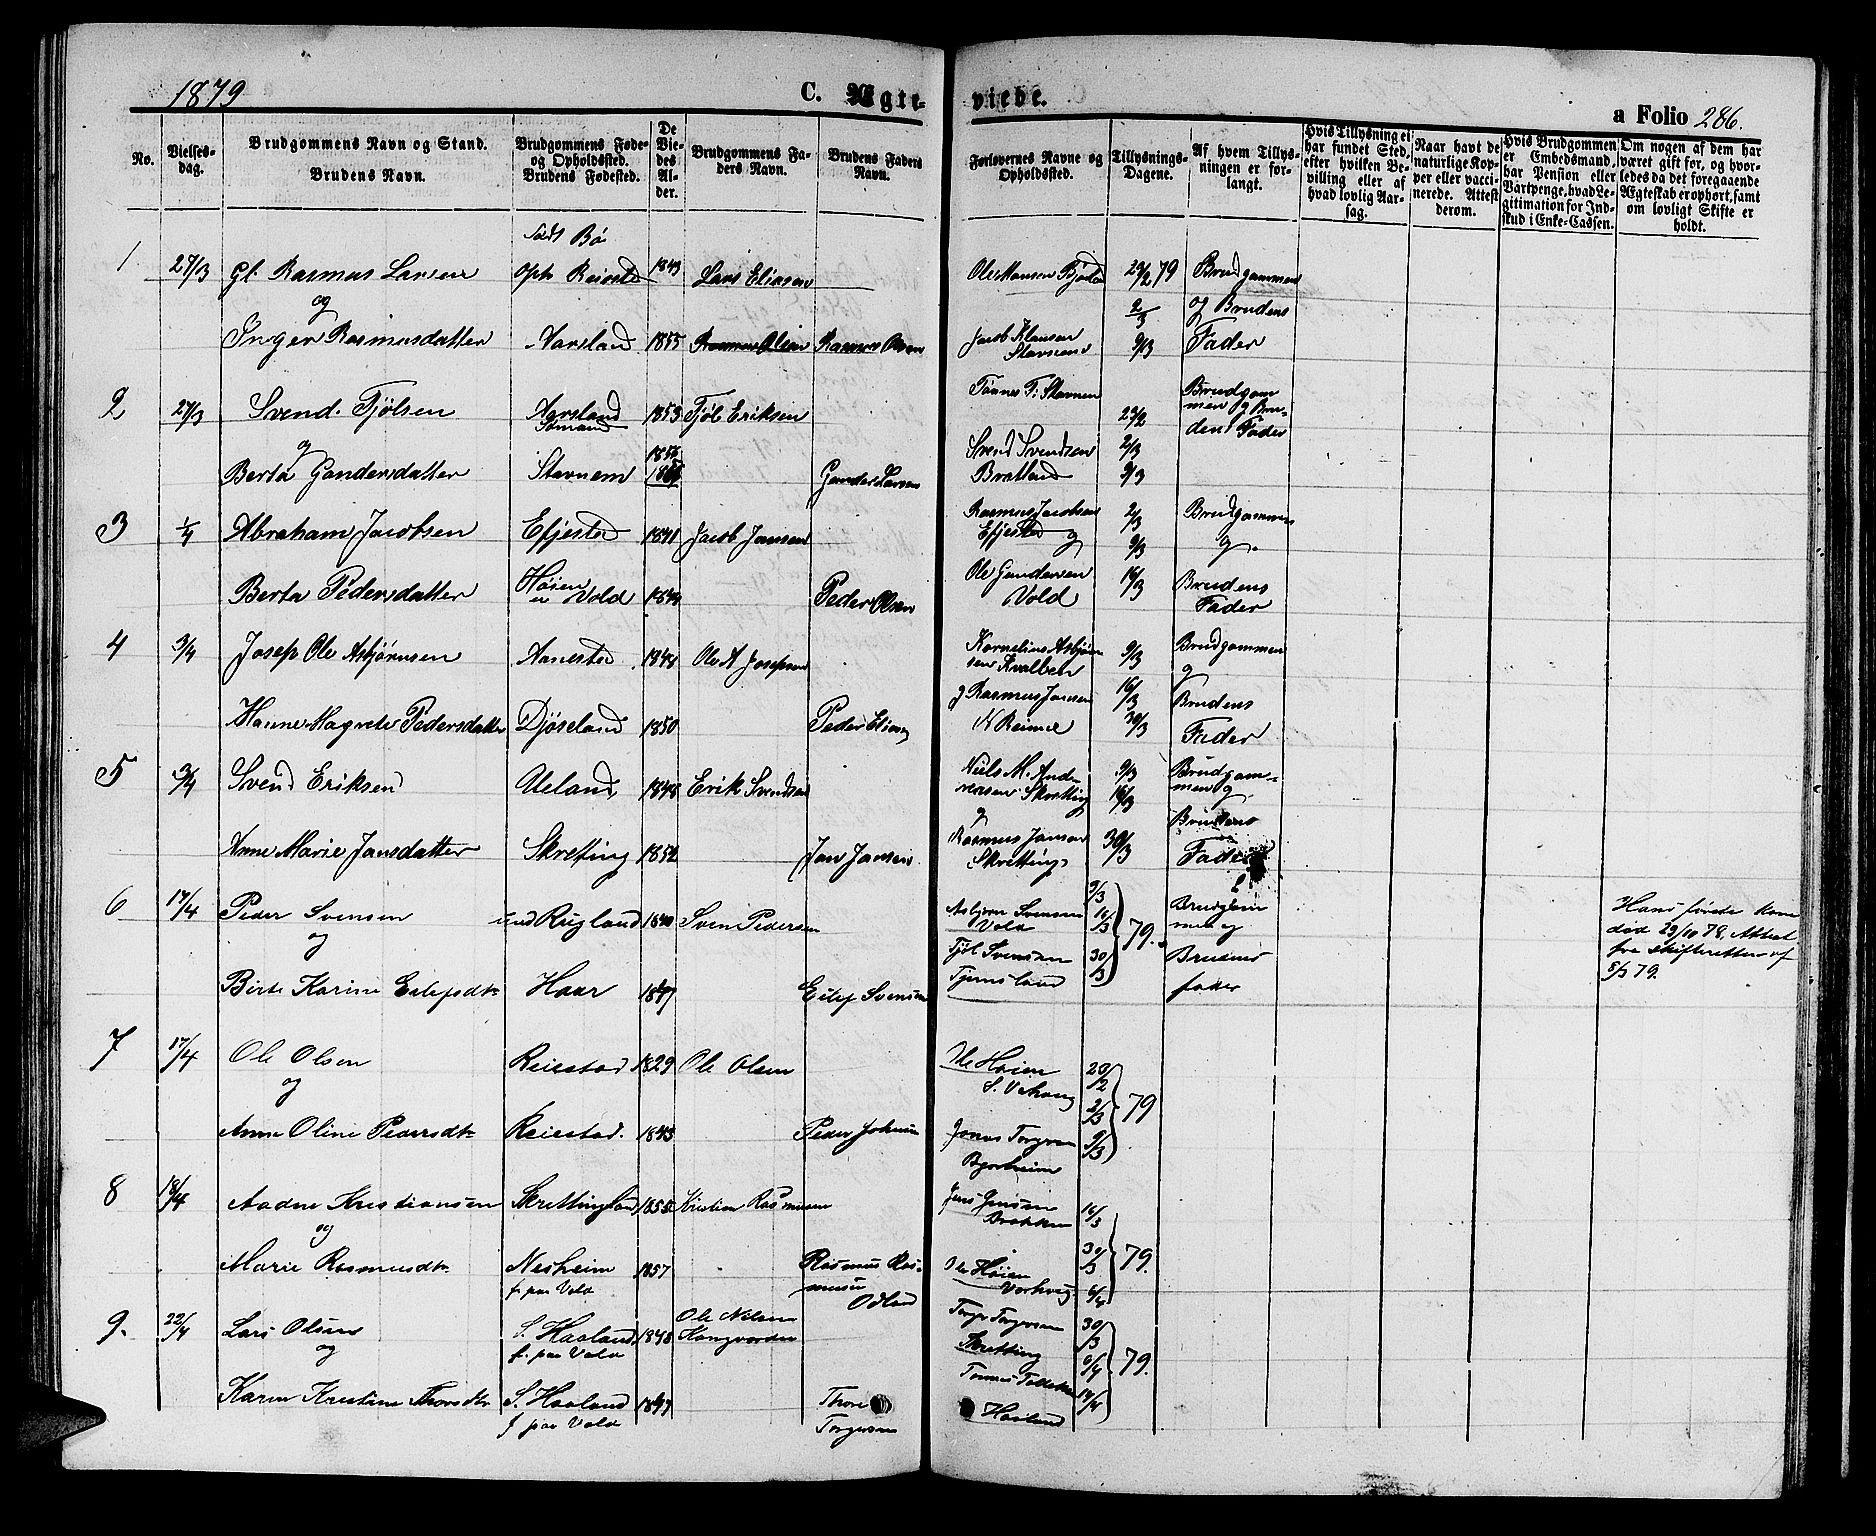 1879 C. Ægte- viede. a Folio 286.
No.
Vielses-dag.
Brudgommens Navn og Stand.
Brudens Navn.
Brudgommens Føde- og Opholdssted.
Brudens Fødested.
De Viedes Alder.
Brudgommens Faders Navn.
Brudens Faders Navn.
Forlovernes Navne og Opholdssted.
Tillysnings-Dagene.
Af hvem Tillysningen er forlangt.
Hvis Tillysning ei har fundet Sted, efter hvilken Bevilling eller af hvad lovlig Aarsag.
Naar havt de naturlige Kopper eller vaccinerede. Attest derom.
Hvis Brudgommen er Embedsmand, har Pension eller Vartpenge, hvad Legitimation for Indskud i Enke-Cassen.
Om nogen af dem har været gift før, og hvorledes da det foregaaende Ægteskab er ophørt, samt om lovligt Skifte er holdt.
Bø
1 27/3 Gl. Rasmus Larsen 1843 Lars Eliasen 23/2 79 Brudgommen
og 2/3 og Brudens
Inger Rasmusdatter Aarsland 1855 Rasmus Olsen Rasmus Olsen Jacob Klausen 9/3 Fader
2 27/3 Svend Tjølsen Aarsland 1853 Tjøl Eriksen Tønnes T. Stavnem 23/2 Brudgommen og Brudens Fader
Sømand
og Svend Svendsen 2/3
Berta Gundersdatter Stavnem Gunder Larsen Bratland 9/3
3 1/4 Abraham Jacobsen Efjested 1841 Jacob Jansen Rasmus Jacobsen 2/3 Brudgommen
Efjested og 9/3 og
Berta Pedersdatter Høien Vold Peder Olsen Ole Gundersen Vold 16/3 Brudens Fader
4 3/4 Josep Ole Asbjørnsen Aanested 1848 Ole A Josepsen Kornelius Asbjørnsen Kvalben 9/3 Brudgommen
og
og Rasmus Jansen 16/3 Brudens
Hanne Magrete Pedersdatter Djøseland 1850 Peder N Reime 30/3 Fader
5 3/4 Svend Eriksen Ueland 1848 Erik Svendsen Niels M. Andreasen Skretting 9/3 16/3 Brudgommen og
og Brudens
Anne Marie Jansdatter Skretting 1852 Jan Jansen Rasmus Jansen Skretting 30/3 Fader
6 17/4 Peder Svensen Rugland 1840 Sven Pedersen Asbjørn Svensen Vold 9/3 16/3 79. Hans første Kone
og død 29/10 78. Attest
fra Skifteretten af
5/3 79.
Birte Karine Eilefsdtr Haar Eilef Svensen Tjøl Svensen 30/3 Brudens fader
7 17/4 Ole Olsen Reiestad 1829 Ole Olsen Ole Høien 23/2
og 2/3 79
Anne Oline Pedersdtr Reiestad. 1843 Peder Johnsen Jonas Torgersen 9/3
8 18/4 Aadne Kristiansen Skrettingland 1855 Kristian Rasmussen Jens Jensen 16/3
og 30/3 79.
Marie Rasmusdtr Nesheim 1857 Rasmus Rasmussen Ole Høien 6/4
f. paa Vold Odland
9. 22/4 Lars Olsen S. Haaland 1848 Ole Nilsen Torger Torgersen 30/3
og f. paa Vold Skretting 6/4 79.
Karen Kristine Thorsdtr S. Haaland Thore Tønnes 14/4
f paa Vold Torgersen Haaland